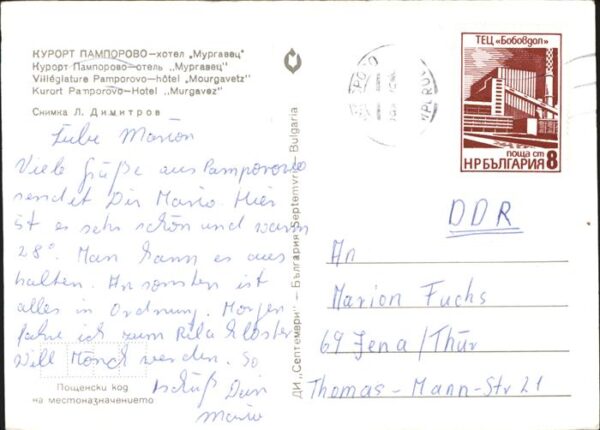 КУРОРТ ПАМПОРОВО—хотел „Мургавец"
Курорт Пампорово—отель „Мургавец"
Villégiature Pamporovo—hôtel „Mourgavetz"
Kurort Pamporovo—Hotel „Murgavez"
Снимка Л. Димитров
Liebe Marion
Viele Grüße aus Pamporovo
sendet Dir Mario. Hier
ist es sehr schön und warm
28°. Man kann es aus
halten. Ansonsten ist
alles in Ordnung. Morgen
fahre ich zum Rila Kloster
Will Mönch werden. So
tschüß Dein
Mario
Пощенски код
на местоназначението
ДИ „Септември" — България Septemvri — Bulgaria
ТЕЦ „Бобовдол"
поща ст
НР БЪЛГАРИЯ 8
DDR
An
Marion Fuchs
69 Jena/Thür
Thomas-Mann-Str 21